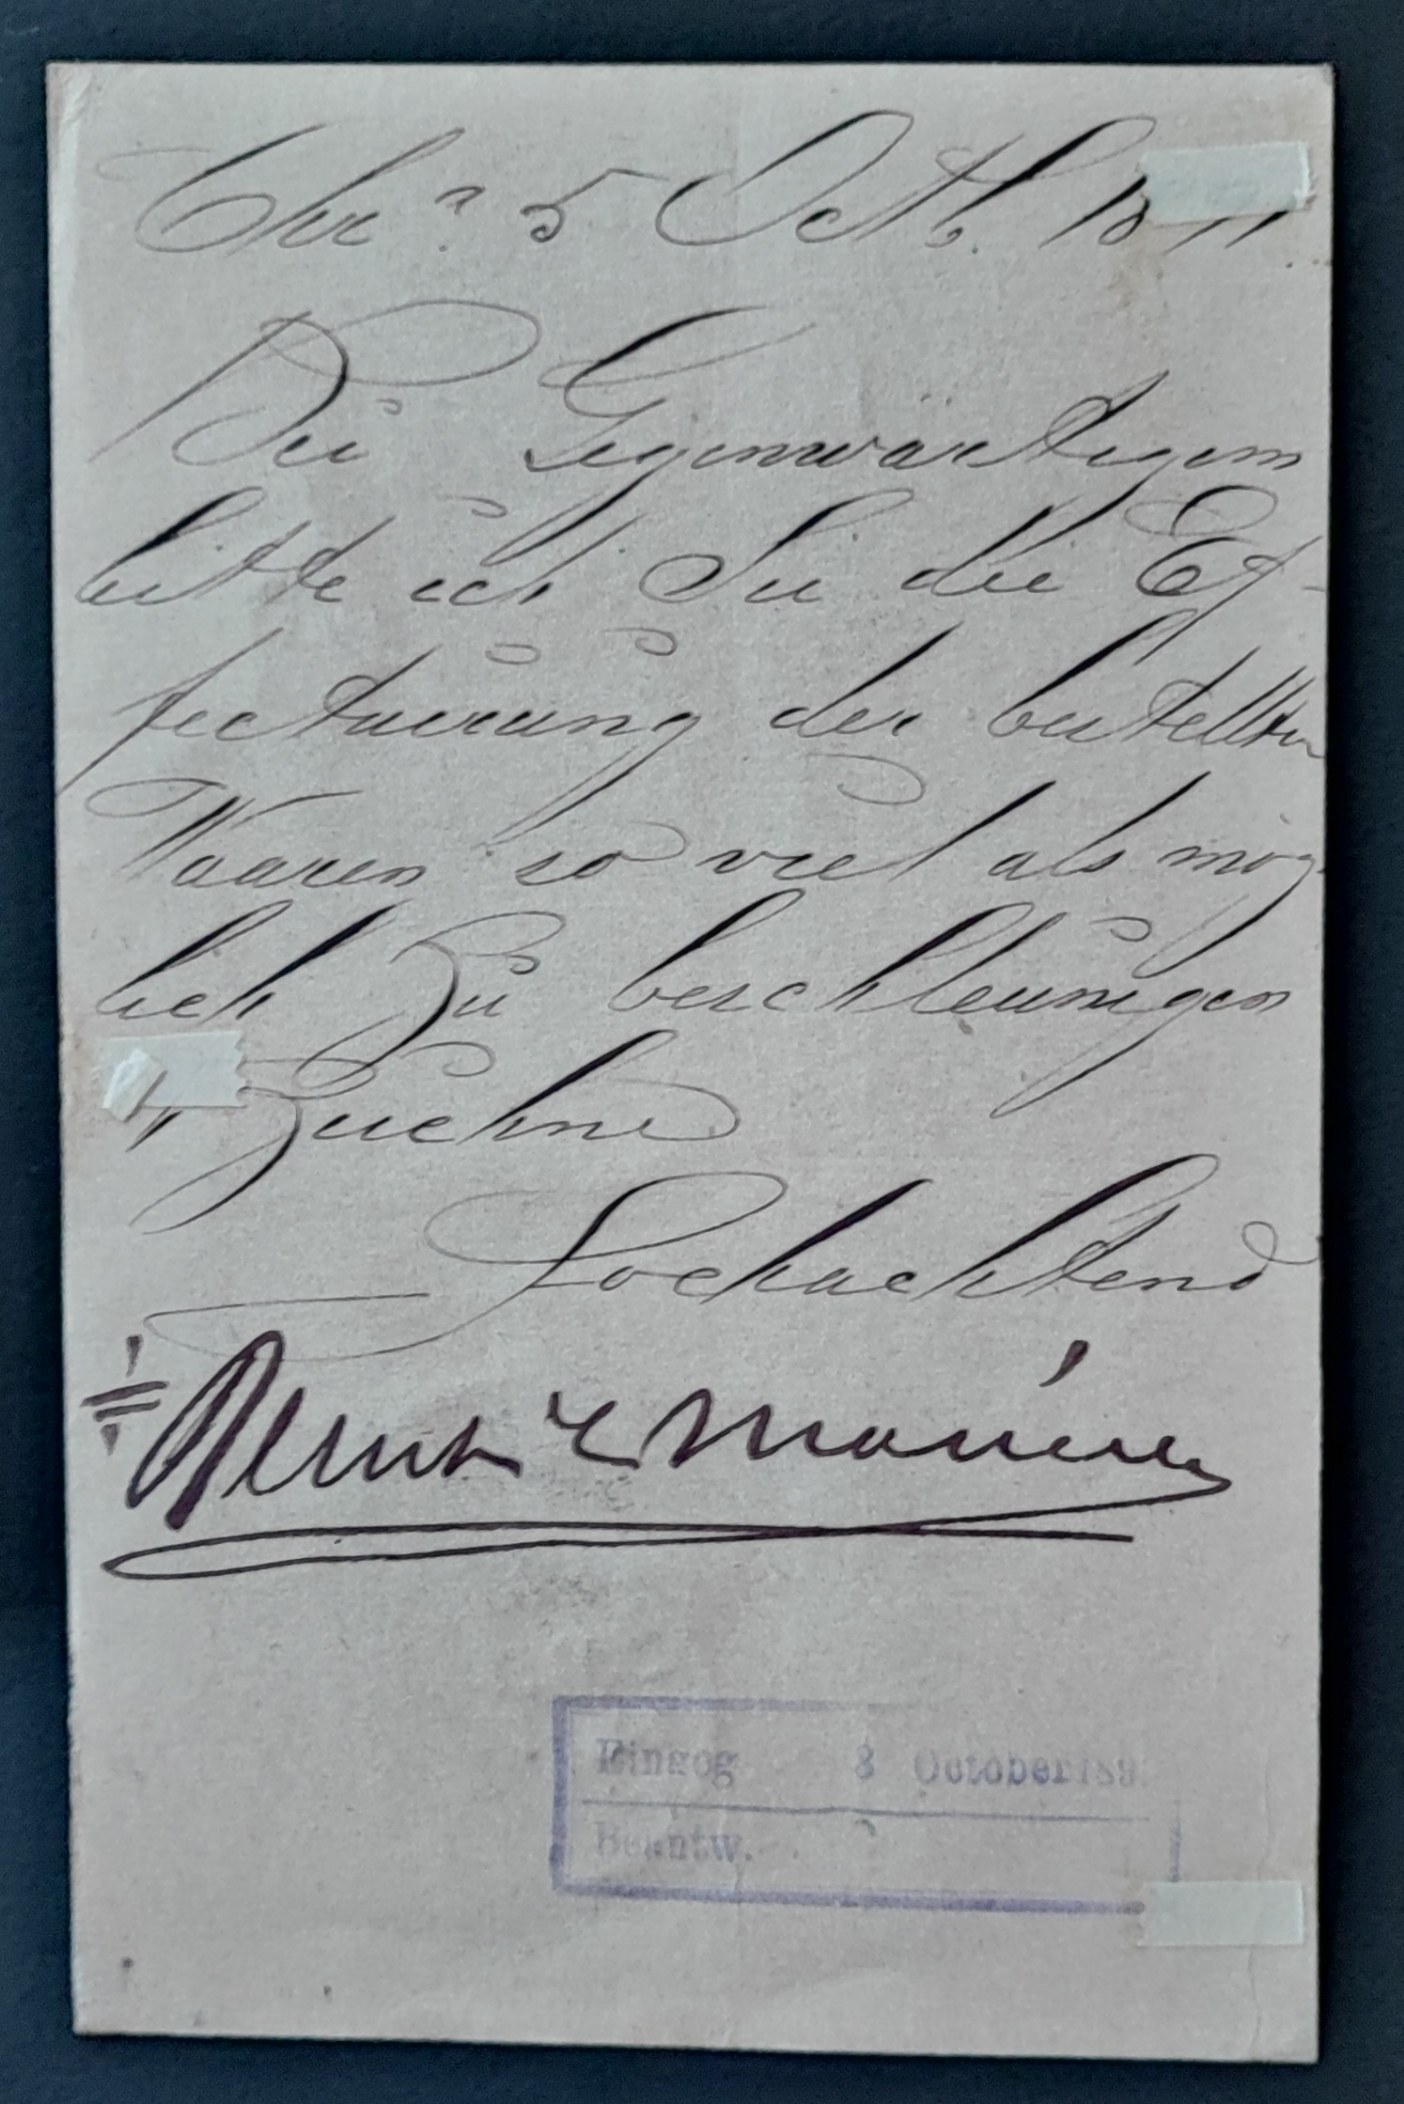 5 Octb. 18
Bei Gegenwärtigem
bitte ich Sie die Ef-
fectuirung der bestellten
Waaren so viel als mög-
lich zu beschleunigen
Zeichne
Hochachtend
Eingeg 8 October 189
Beantw.